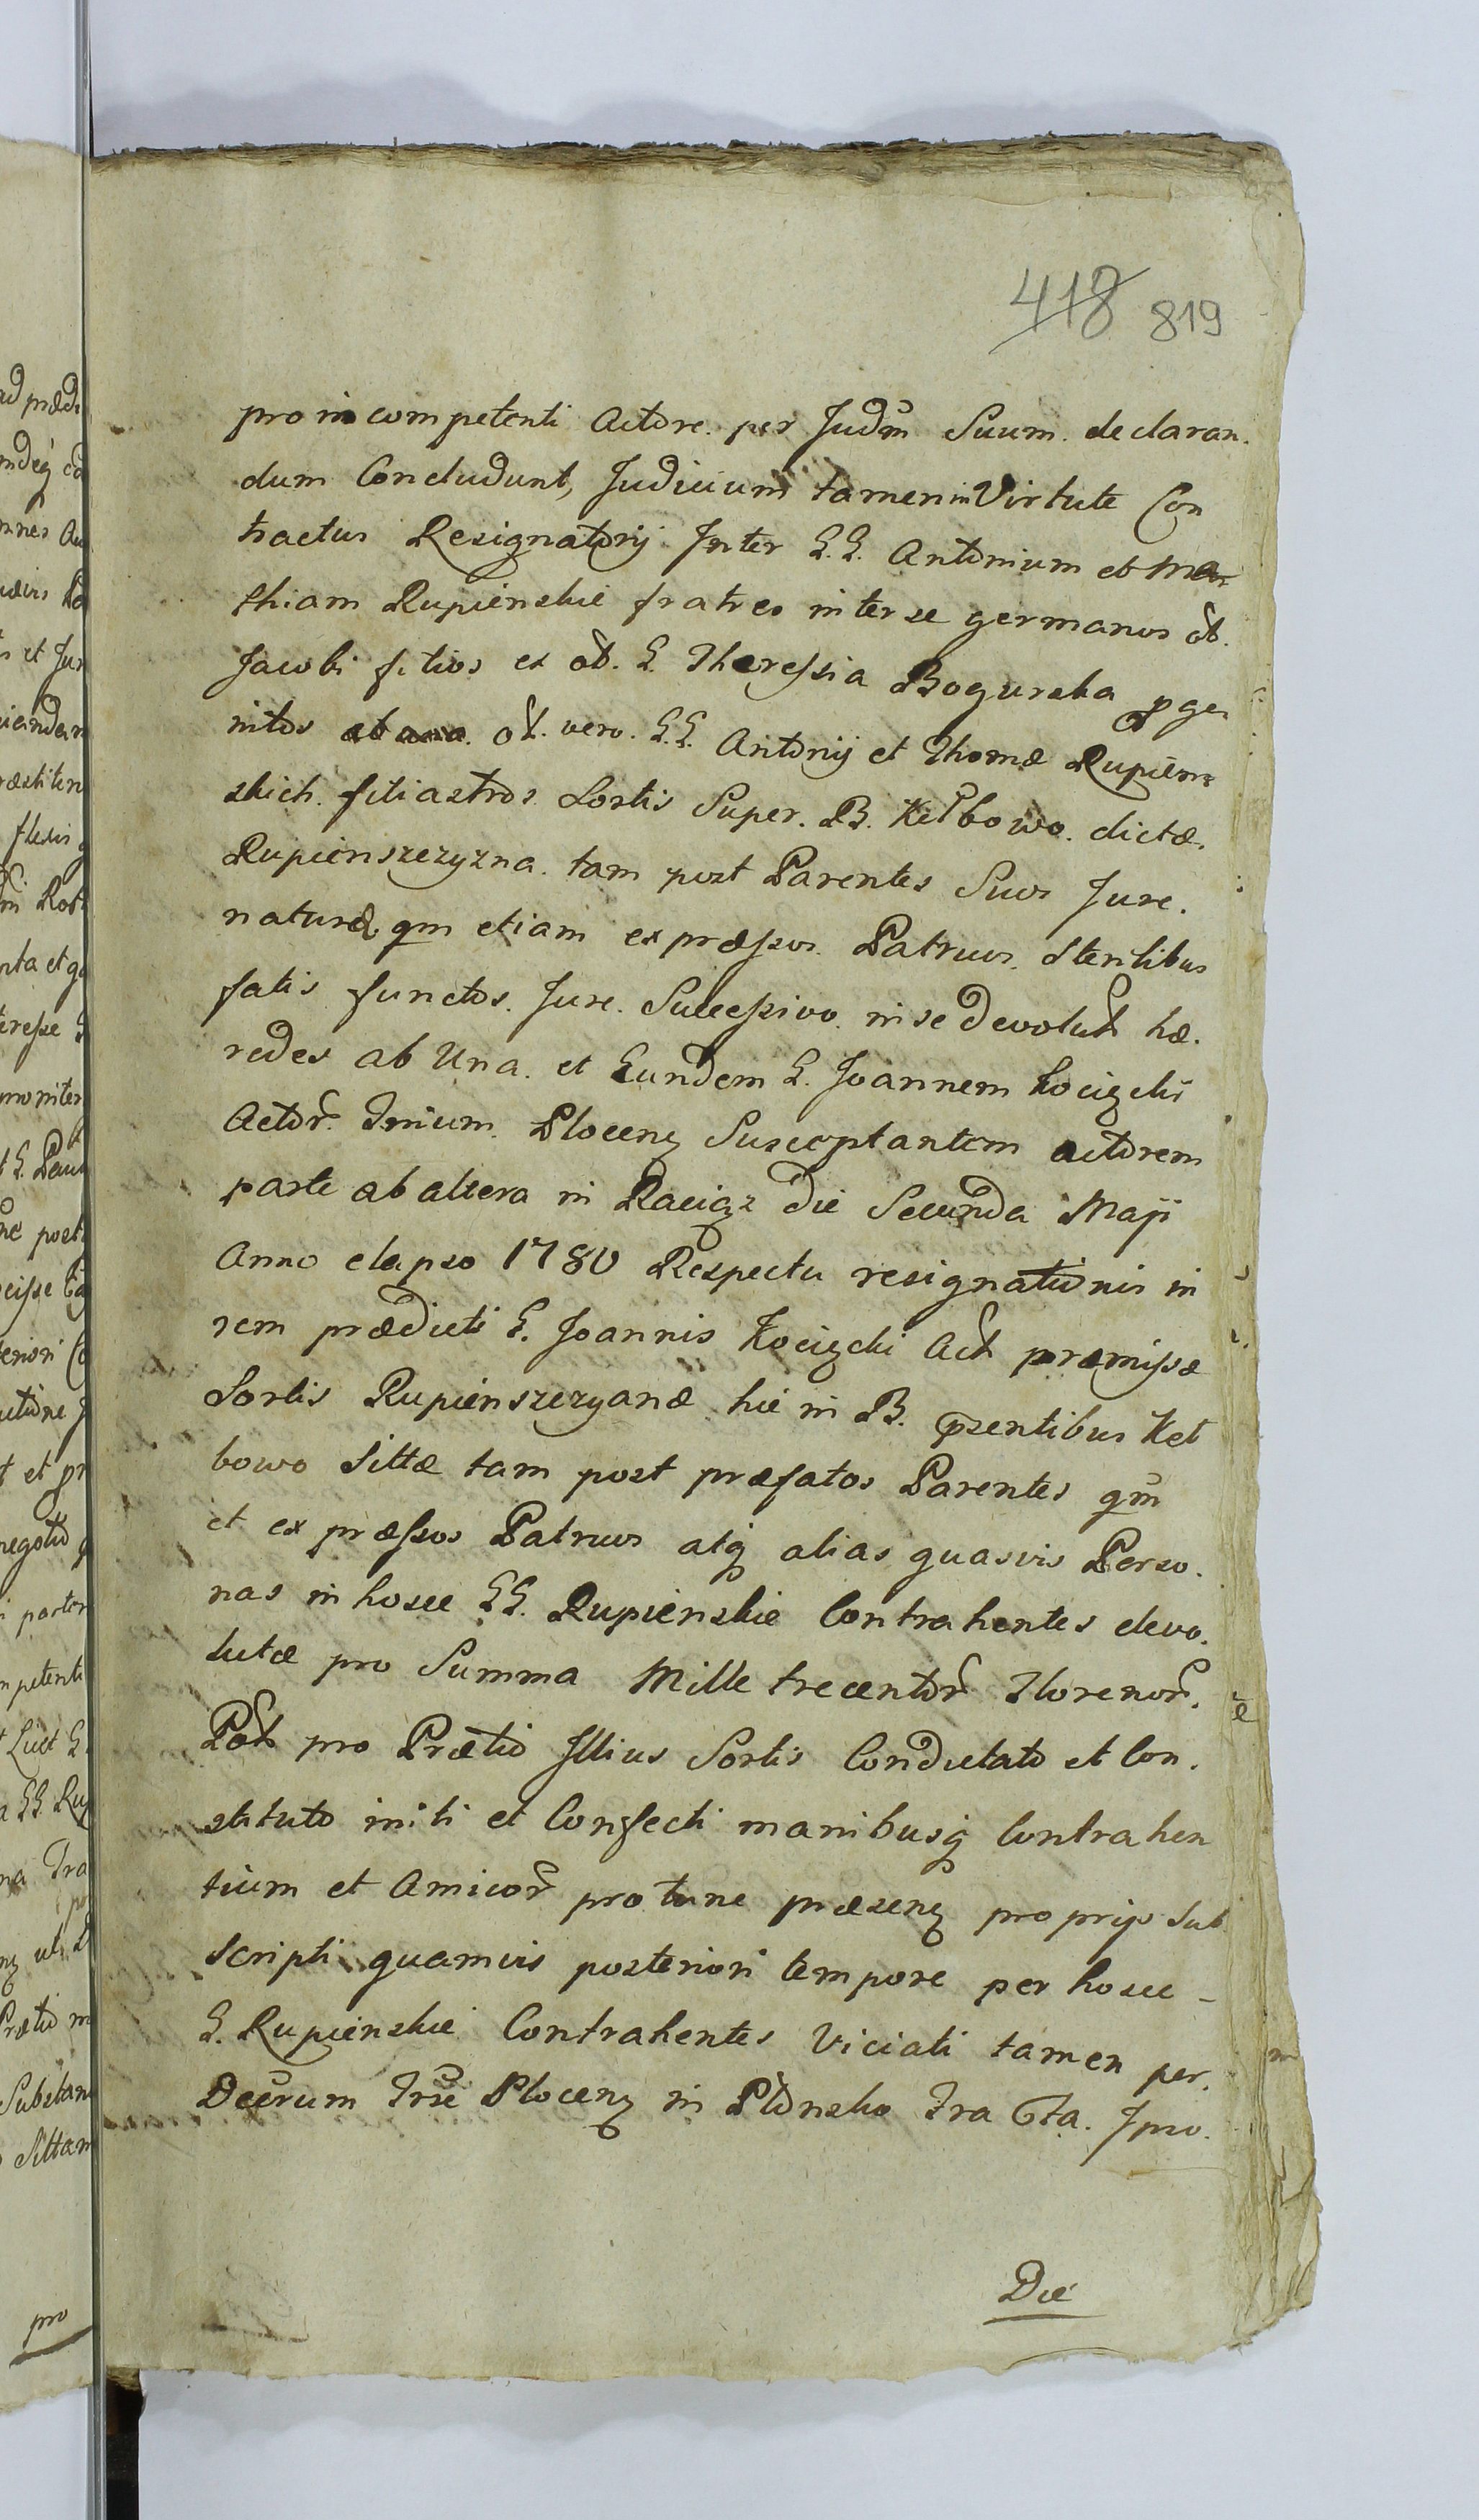 418 819
pro incompetenti Actore. per Judm̃ Suum. declaran.
dum Concludunt, Judicium tamen in Virtute Con
tractus Resignatorij Inter G.G. Antonium et Ma
thiam Rupienskie fratres inter se germanos ol.
Jacobi filios ex ol. G. Theressia Bogurska pge
nitos ol. vero. G.G. Antonij et Thomæ Rupien
skich. filiastros Sortis Super. B. Kełbowo. dictæ.
Rupienszczyzna. tam post Parentes Suos Jure.
naturæ, qm etiam ex præssos. Patruos. sterilibus
fatis functos. Jure. Sucessivo. in se devolut hæ.
redes ab Una. et Eundem G. Joannem Kocięcki
Actor. Tmium. Plocenȝ Susceptantem actorem
parte ab altera in Raciąz die Secunda Maji
Anno elapso 1780 Respectu resignationis in
rem prædicti G. Joannis Kocięcki Act præmissæ
Sortis Rupienszczyanæ hic in B. pzentibus Keł
bowo Sittæ tam post præfatos Parentes qm̃
et ex præssos Patruos atq̨ alias quasvis Perso.
nas in hosce GG. Rupienskie Contrahentes devo.
lutæ pro Summa Mille trecentor Florenor.
Pol pro Prætio Illius Sortis Condictato et Con.
stituto initi et Confecti manibusq̨ Contrahen
tium et Amicor pro tunc præsenȝ proprijs Sub
scripti quamvis posteriori tempore per hosce -
G. Rupienskie Contrahentes Viciati tamen per.
Decrum Trse Plocenȝ in Płonsko Fra 6ta. Ipso.
Die